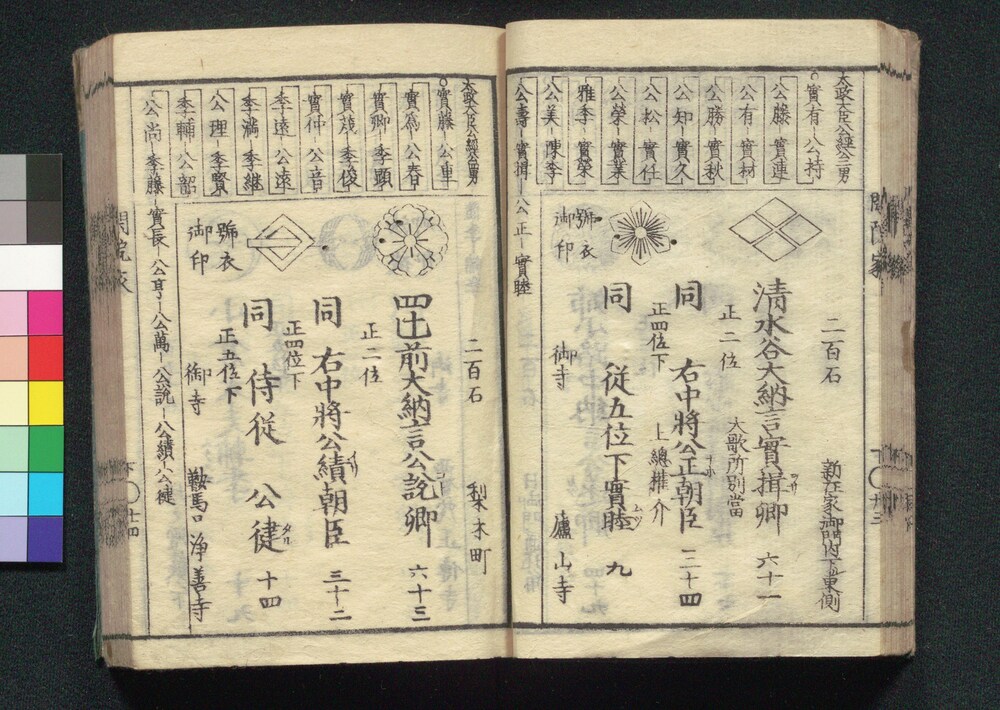 太政大臣公經三男
實有 公持
公藤 實連
公有 實材
公勝 實秋
公知 實久
公松 實任
公榮 實業
雅季 實榮
公美 陳季
公壽 實揖 公正 實睦
二百石
新在家御門内下ル東側
清水谷大納言實揖卿 六十一
正二位
大歌所別當
同 右中將公正朝臣 三十四
正四位下
上總權介
同 從五位下實睦 九
御寺
廬山寺
號衣
御印
閑院家
下 十三
太政大臣公經四男
實藤 公重
實為 公春
實卿 季顕
實茂 季俊
實仲 公音
季遠 公遠
季滿 季継
公理 季賢
季輔 公韶
公尚 季藤 實長 公亨 公萬 公説 公績 公健
二百石
梨木町
四辻前大納言公説卿 六十三
正二位
同 右中將公績朝臣 三十二
正四位下
同 侍従 公健 十四
正五位下
號衣
御印
御寺
鞍馬口 浄善寺
閑院家
下 十四